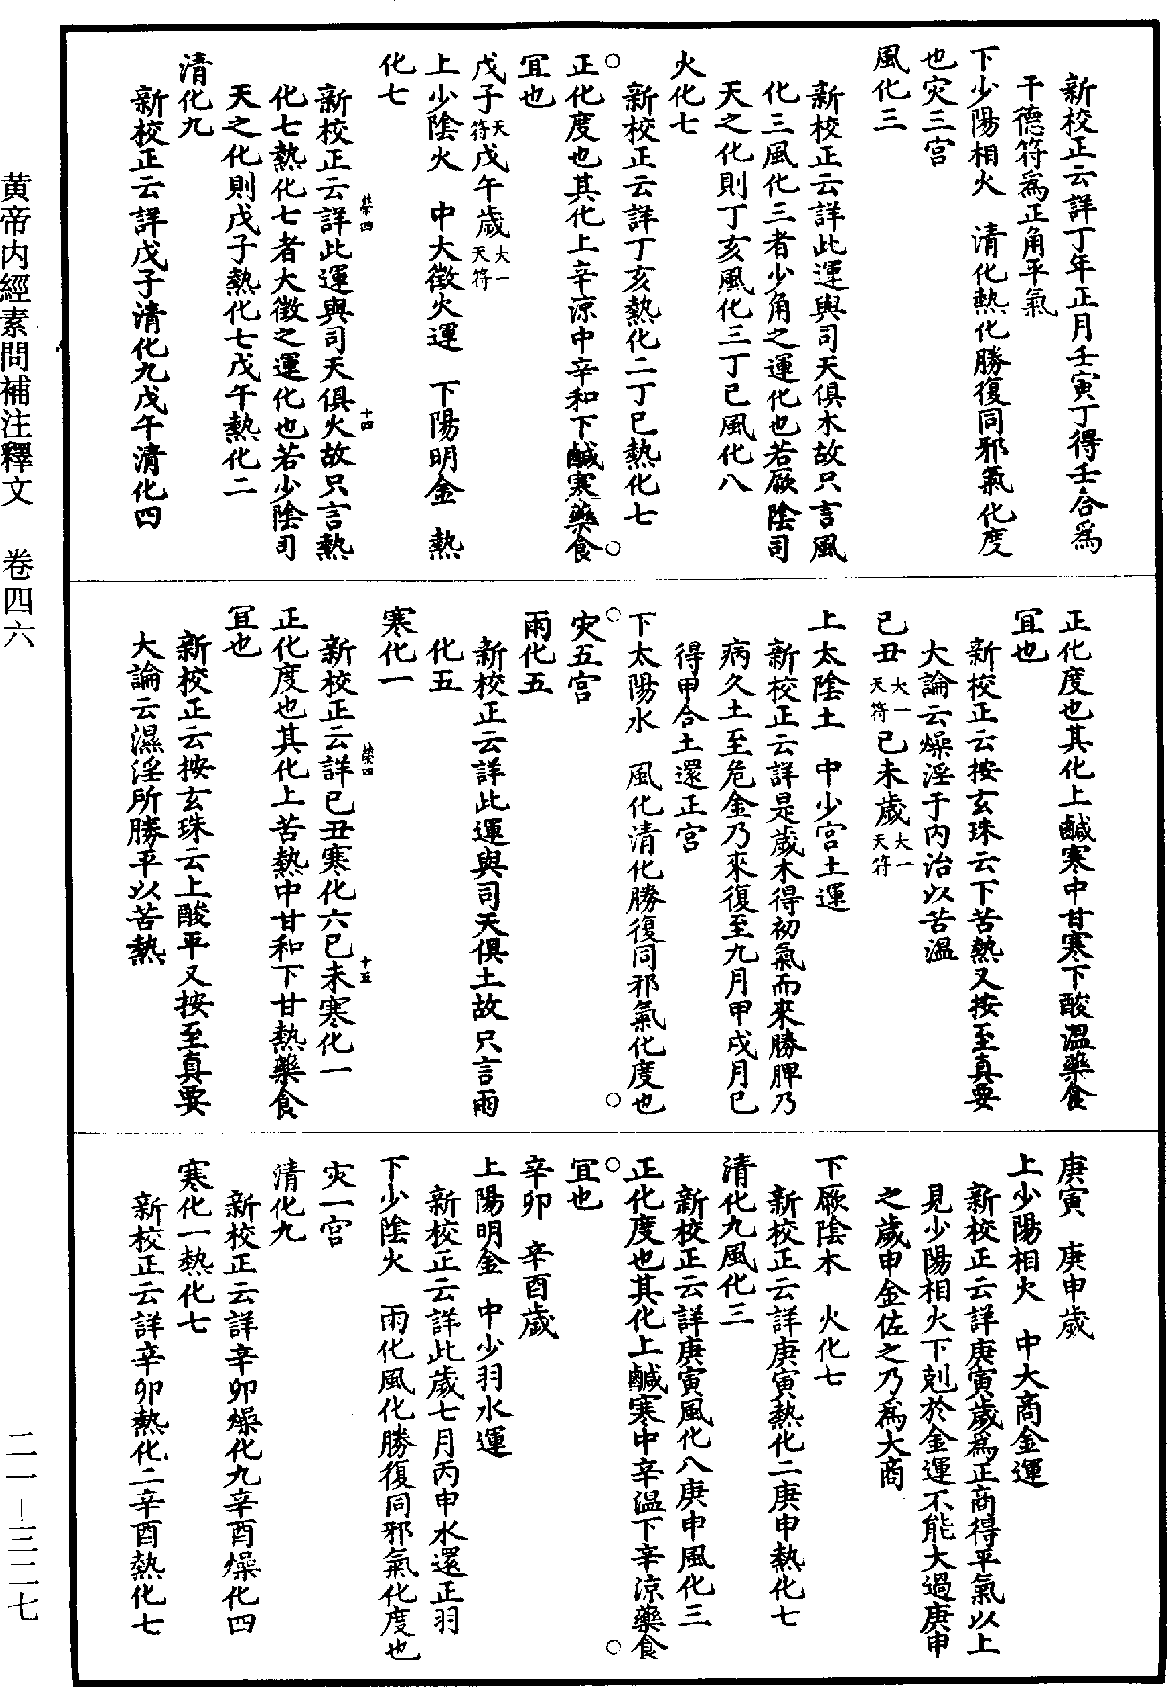 新校正云詳丁年正月壬寅丁得壬合爲
干德符爲正角平氣
下少陽相火　清化熱化勝復同邪氣化度
也灾三宫
風化三
新校正云詳此運與司天俱木故只言風
化三風化三者少角之運化也若厥陰司
天之化則丁亥風化三丁巳風化八
火化七
新校正云詳丁亥熱化二丁巳熱化七
○正化度也其化上辛凉中辛和下鹹寒藥食○
冝也
戊子天符戊午歲大一天符
上少陰火　中大徵火運　下陽明金　熱
化七
新校正云詳此運與司天俱火故只言熱
化七熱化七者大徵之運化也若少陰司
天之化則戊子熱化七戊午熱化二
清化九
新校正云詳戊子清化九戊午清化四
榮四
十四
正化度也其化上鹹寒中甘寒下酸溫藥食
冝也
新校正云按玄珠云下苦熱又按至真要
大論云燥淫于内治以苦溫
己丑大一天符己未歲大一天符
上太陰土　中少宫土運
新校正云詳是歲木得初氣而來勝脾乃
病久土至危金乃來復至九月甲戌月己
得甲合土還正宫
下太陽水　風化清化勝復同邪氣化度也
○灾五宫○
雨化五
新校正云詳此運與司天俱土故只言雨
化五
寒化一
新校正云詳己丑寒化六己未寒化一
榮四
十五
正化度也其化上苦熱中甘和下甘熱藥食
冝也
新校正云按玄珠云上酸平又按至真要
大論云濕淫所勝平以苦熱
庚寅　庚申歲
上少陽相火　中大商金運
新校正云詳庚寅歲爲正商得平氣以上
見少陽相火下剋於金運不能大過庚申
之歲申金佐之乃爲大商
下厥陰木　火化七
新校正云詳庚寅熱化二庚申熱化七
清化九風化三
新校正云詳庚寅風化八庚申風化三
正化度也其化上鹹寒中辛溫下辛凉藥食
○冝也○
辛卯　辛酉歲
上陽明金　中少羽水運
新校正云詳此歲七月丙申水還正羽
下少陰火　雨化風化勝復同邪氣化度也
灾一宫
清化九
新校正云詳辛卯燥化九辛酉燥化四
寒化一熱化七
新校正云詳辛卯熱化二辛酉熱化七
黄帝内經素問補注釋文　卷四六
二一—三二七